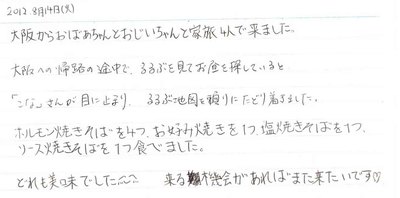 2012.8月14日(火)
大阪からおばあちゃんとおじいちゃんと家旅4人で来ました。
大阪への帰路の途中で、るるぶを見てお店を探していると
「こな」さんが目に止まり、るるぶ地図を頼りにたどり着きました。
ホルモン焼きそばを4つ、お好み焼きを1つ、塩焼きそばを1つ、
ソース焼きそばを1つ食べました。
どれも美味でした 来る機会があればまた来たいです♡